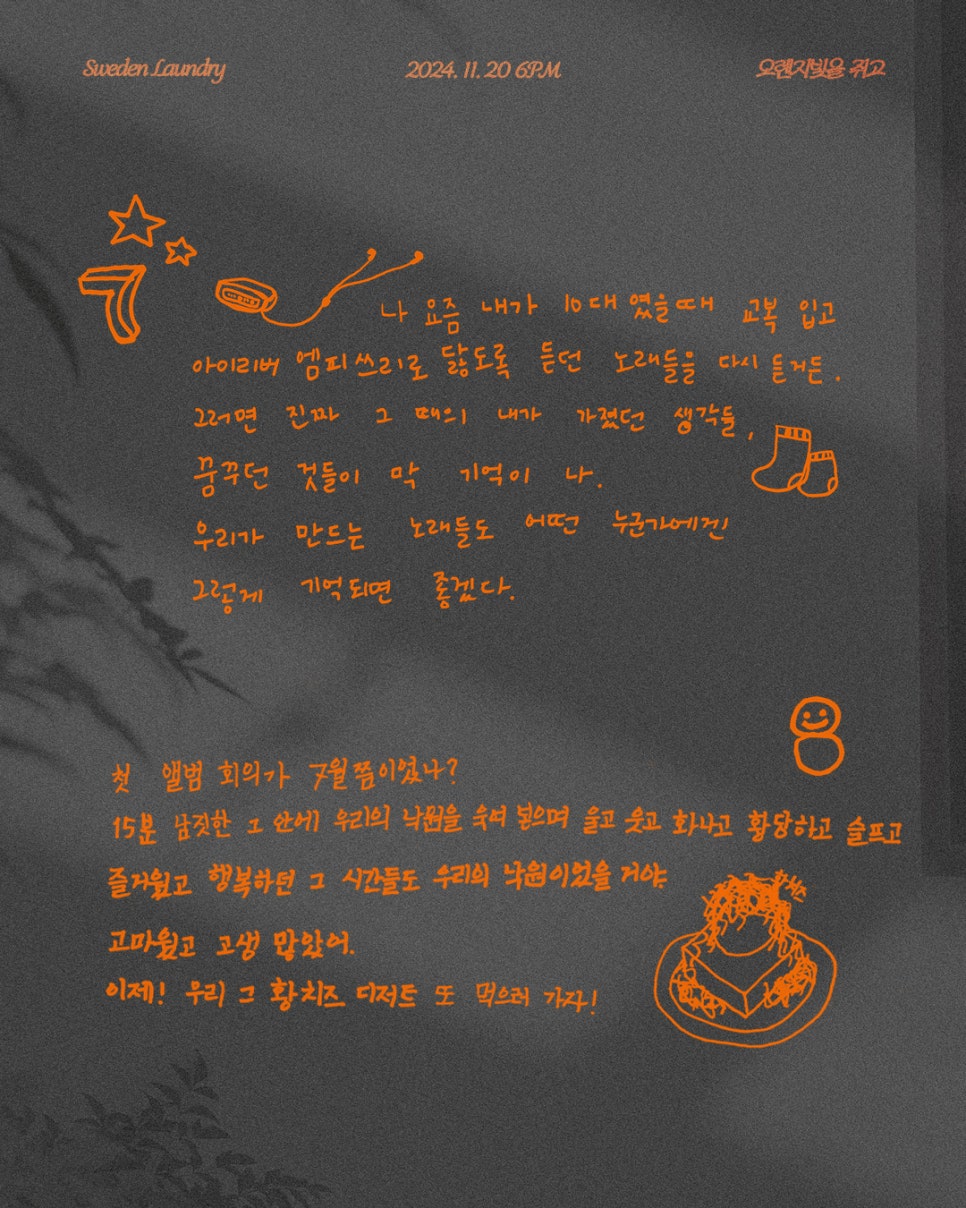 Sweden Laundry
2024. 11. 20 6PM
오렌지빛을 쥐고
나 요즘 내가 10대였을때 교복 입고
아이리버 엠피쓰리로 닳도록 듣던 노래들을 다시 듣거든.
그러면 진짜 그 때의 내가 가졌던 생각들,
꿈꾸던 것들이 막 기억이 나.
우리가 만드는 노래들도 어떤 누군가에겐
그렇게 기억되면 좋겠다.
첫 앨범 회의가 7월쯤이었나?
15분 남짓한 그 안에 우리의 낙원을 욱여 넣으며 울고 웃고 화나고 황당하고 슬프고
즐거웠고 행복하던 그 시간들도 우리의 낙원이었을 거야.
고마웠고 고생 많았어.
이제! 우리 그 황치즈 디저트 또 먹으러 가자!